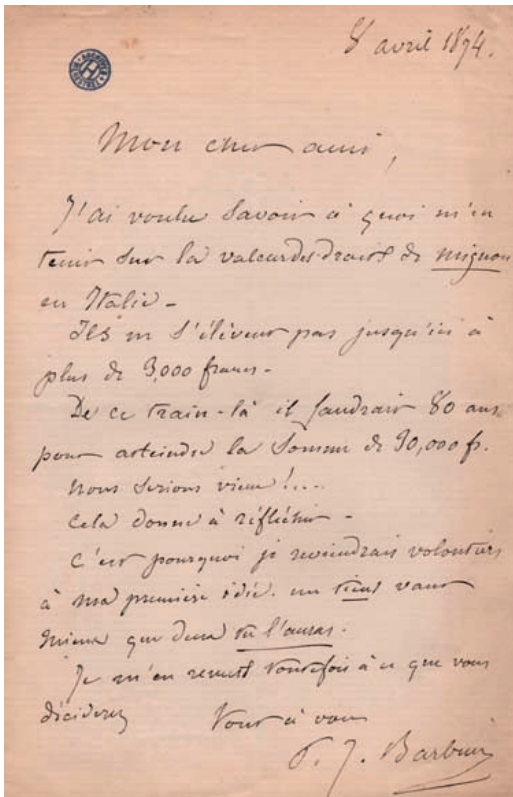 8 avril 1874.
ARCHIVES
H
MENESTREL
Mon cher ami,
J'ai voulu savoir à quoi m'en
tenir sur la valeur des droits de mignon
en Italie -
Ils ne s'élèvent pas jusqu'ici à
plus de 3,000 francs -
De ce train-là il faudrait 80 ans
pour atteindre la somme de 30,000 fr.
nous serions vieux!...
Cela donne à réfléchir -
C'est pourquoi je reviendrais volontiers
à ma première idée. un tiens vaut
mieux que deux tu l'auras.
Je m'en remets toutefois à ce que vous
déciderez
Tout à vous
P. J. Barbier